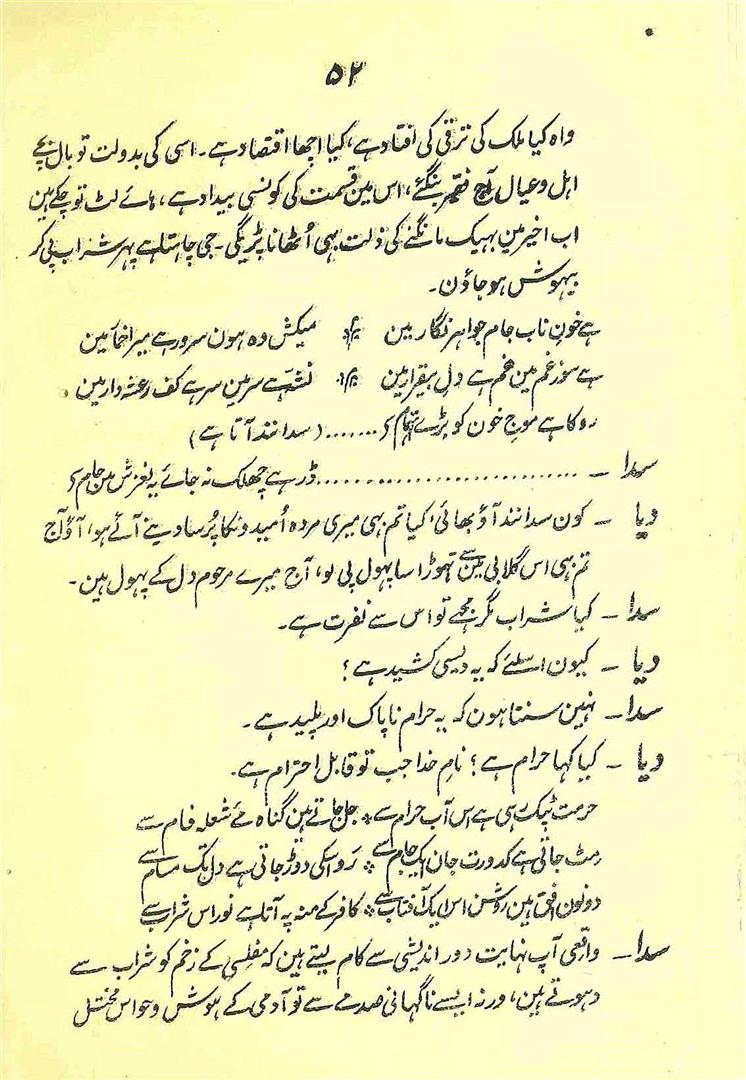 ۵۲
واہ کیا ملک کی ترقی کی افتاد ہے، کیا اچھا اقتصاد ہے۔ اسی کی بدولت تو بال بچے
اہل و عیال آج فقیر بنگئے، اس مین قسمت کی کونسی بیداد ہے، ہائے لٹ تو چکے ہین
اب اخیر مین بہیک مانگنے کی ذلت بہی اُٹھانا پڑیگی۔ جی چاہتا ہے پہر شراب پی کر
بیہوش ہو جاؤن۔
ہے خون ناب جام جواہر نگار مین میکش وہ ہون سرور ہے میرا خمار مین
ہے سوز غم مین غم ہے دل بیقرار مین نشہ ہے سر مین سر ہے کف رعشہ دار مین
روکا ہے موج خون کو بڑے تہام کر....... (سدانند آتا ہے)
سدا ۔ ............................ ڈر ہے چھلک نہ جائے یہ لغزش مین جام کر
دیا ۔ کون سدانند آؤ بھائی، کیا تم بہی میری مردہ اُمیدونکا پُرسا دینے آئے ہو، آؤ آج
تم بہی اس گلابی مین سے تہوڑا سا پہول پی لو، آج میرے مرحوم دل کے پہول ہین۔
سدا ۔ کیا شراب مگر مجہے تو اس سے نفرت ہے۔
دیا ۔ کیون اسلئے کہ یہ دیسی کشید ہے؟
سدا ۔ نہین سنتا ہون کہ یہ حرام ناپاک اور پلید ہے۔
دیا ۔ کیا کہا حرام ہے؟ نام خدا جب تو قابل احترام ہے۔
حرمت ٹپک رہی ہے اس آب حرام سے * جل جاتے ہین گناہ مئے شعلہ فام سے
مٹ جاتی ہے کدورت جان ایک جام سے * رَو اسکی دوڑ جاتی ہے دل تک مسام سے
دونون افق ہین روشن اس ایک آفتاب سے * کافر کے منہ پہ آتا ہے نور اس شراب سے
سدا ۔ واقعی آپ نہایت دور اندیشی سے کام لیتے ہین کہ مفلسی کے زخم کو شراب سے
دہوتے ہین، ورنہ ایسے ناگہانی صدمے سے تو آدمی کے ہوش و حواس مختل